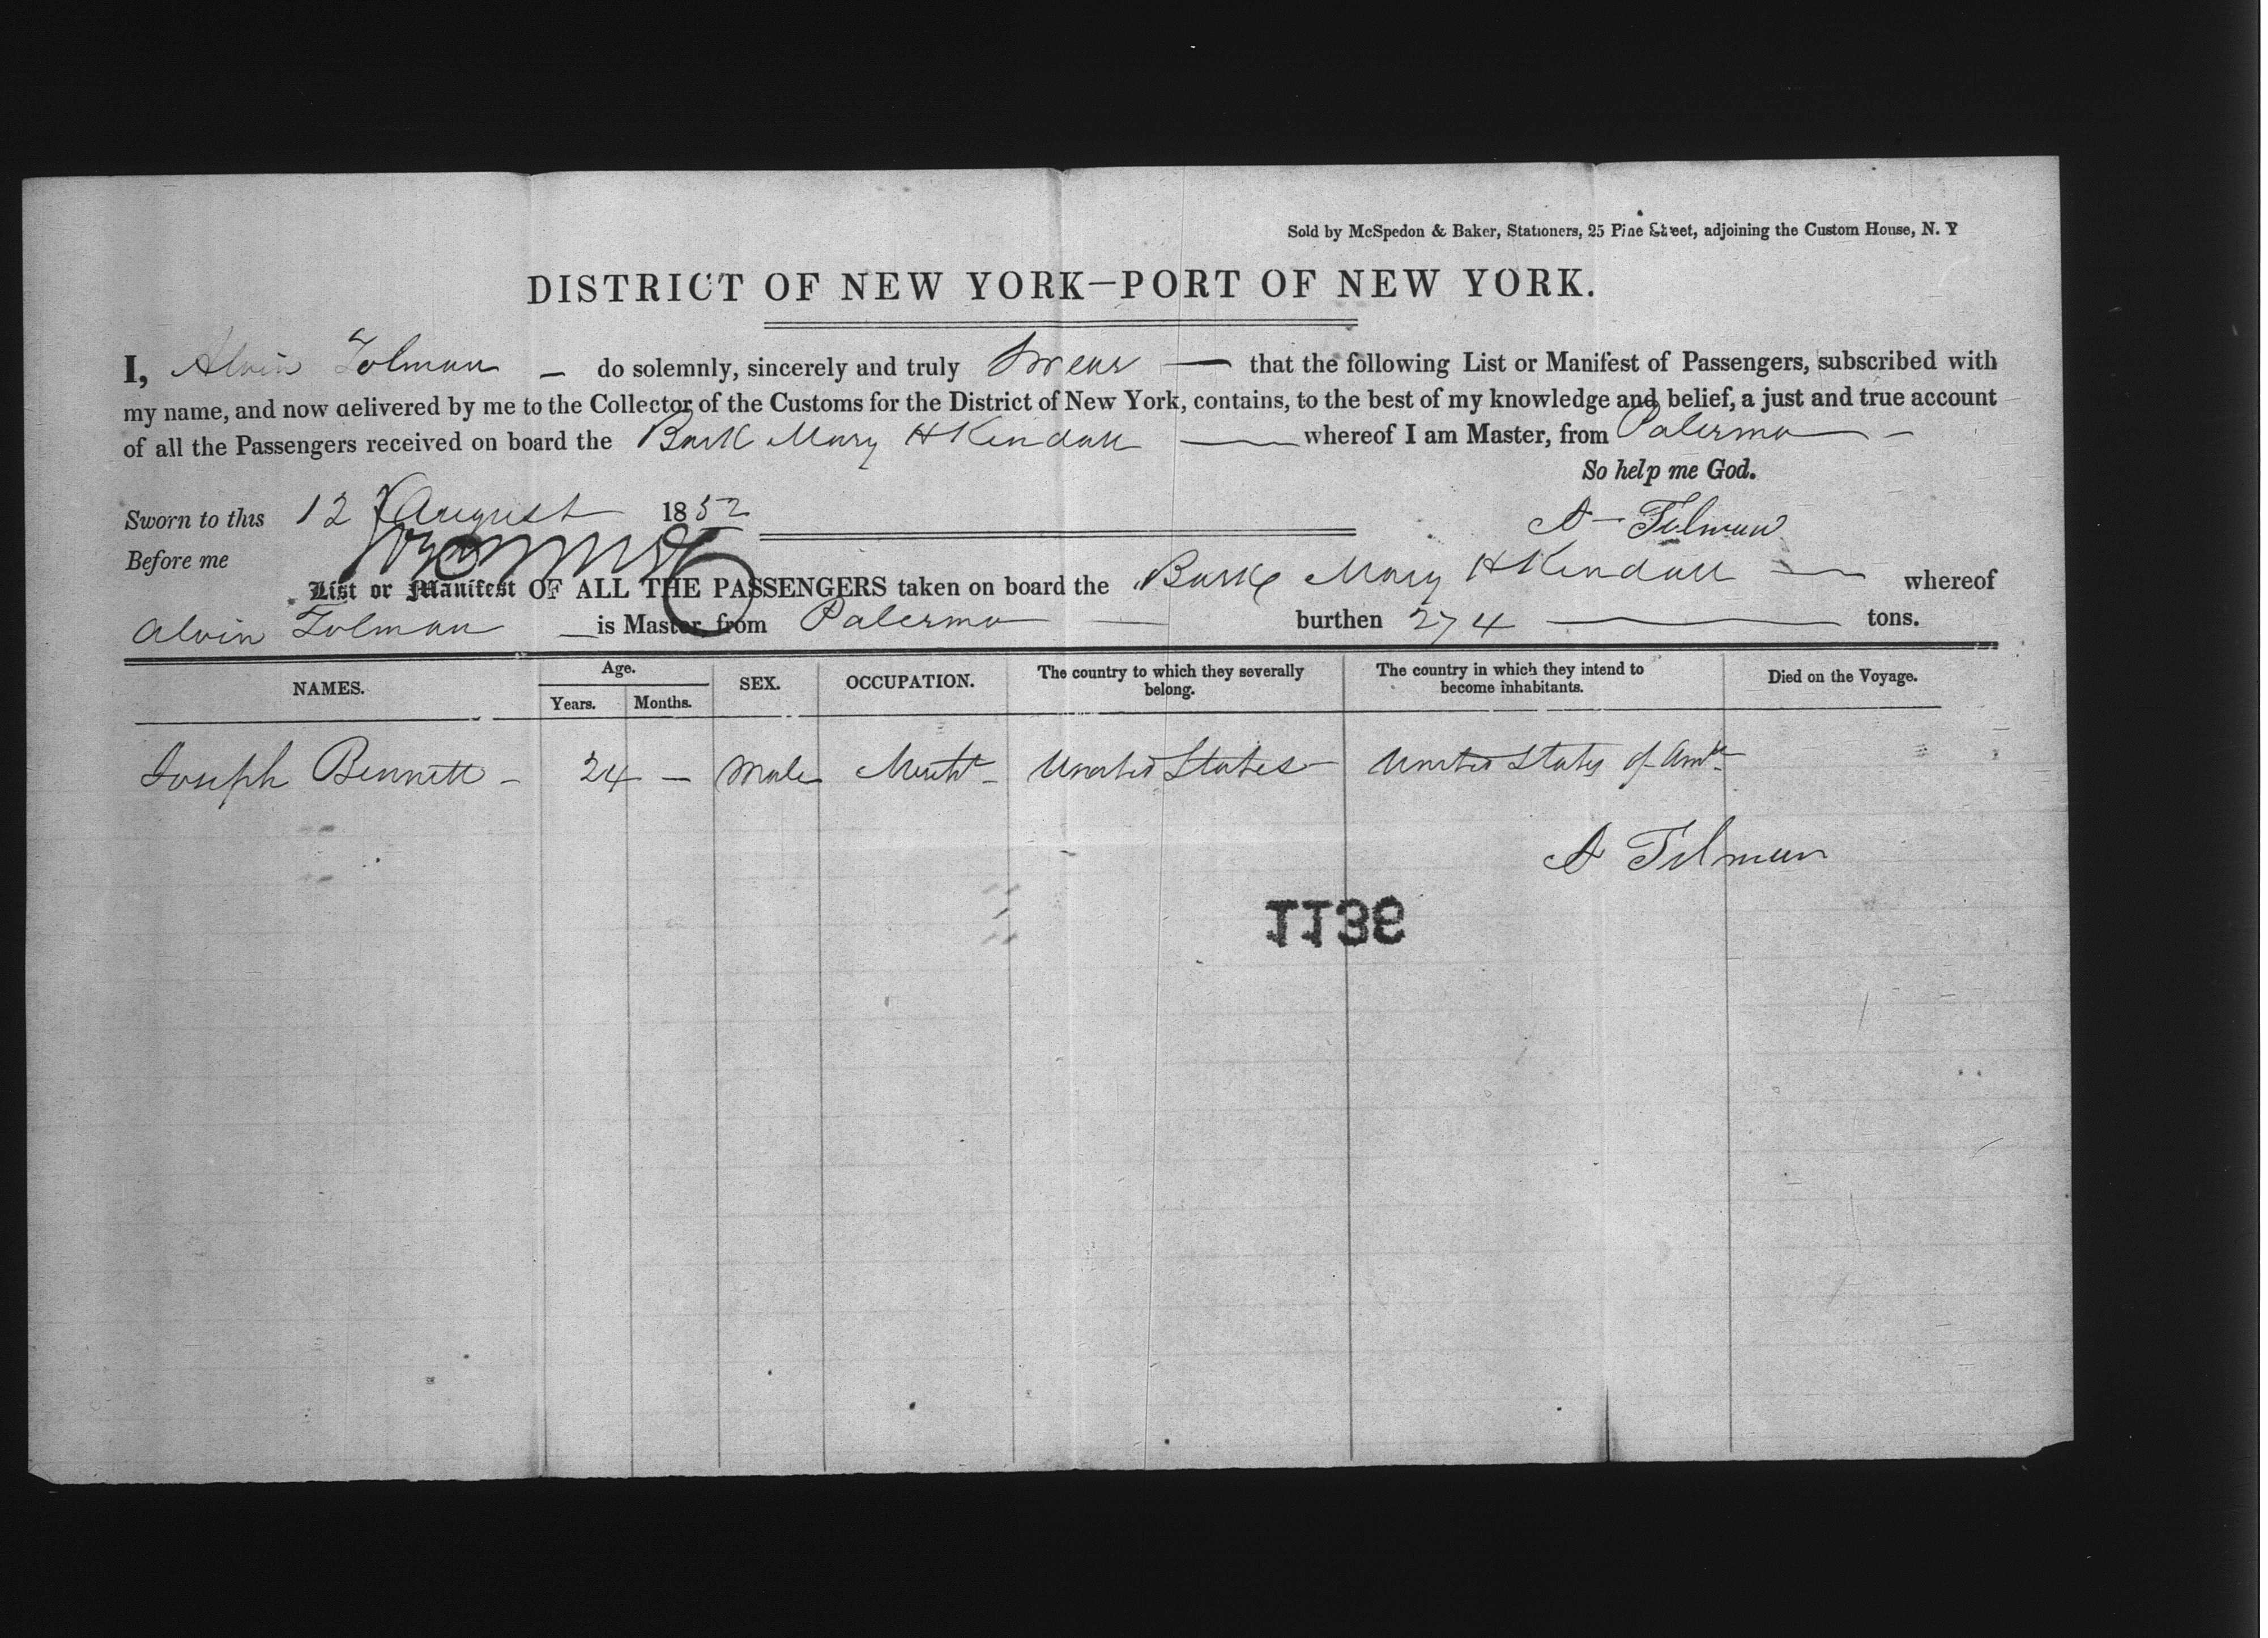 Sold by McSpedon & Baker, Stationers, 25 Pine Street, adjoining the Custom House, N. Y
DISTRICT OF NEW YORK—PORT OF NEW YORK.
I, Alvin Tolman — do solemnly, sincerely and truly Swear — that the following List or Manifest of Passengers, subscribed with
my name, and now delivered by me to the Collector of the Customs for the District of New York, contains, to the best of my knowledge and belief, a just and true account
of all the Passengers received on board the Bark Mary H Kendall — whereof I am Master, from Palermo —
So help me God.
Sworn to this 12 August 1852
A Tolman
Before me
List or Manifest OF ALL THE PASSENGERS taken on board the Barke Mary H Kendall — whereof
Alvin Tolman — is Master, from Palermo — burthen 274 — tons.
NAMES. Age. Years. Months. SEX. OCCUPATION. The country to which they severally belong. The country in which they intend to become inhabitants. Died on the Voyage.
Joseph Bennett — 24 — Male Mercht — United States — United States of Ama
A Tolman
1136